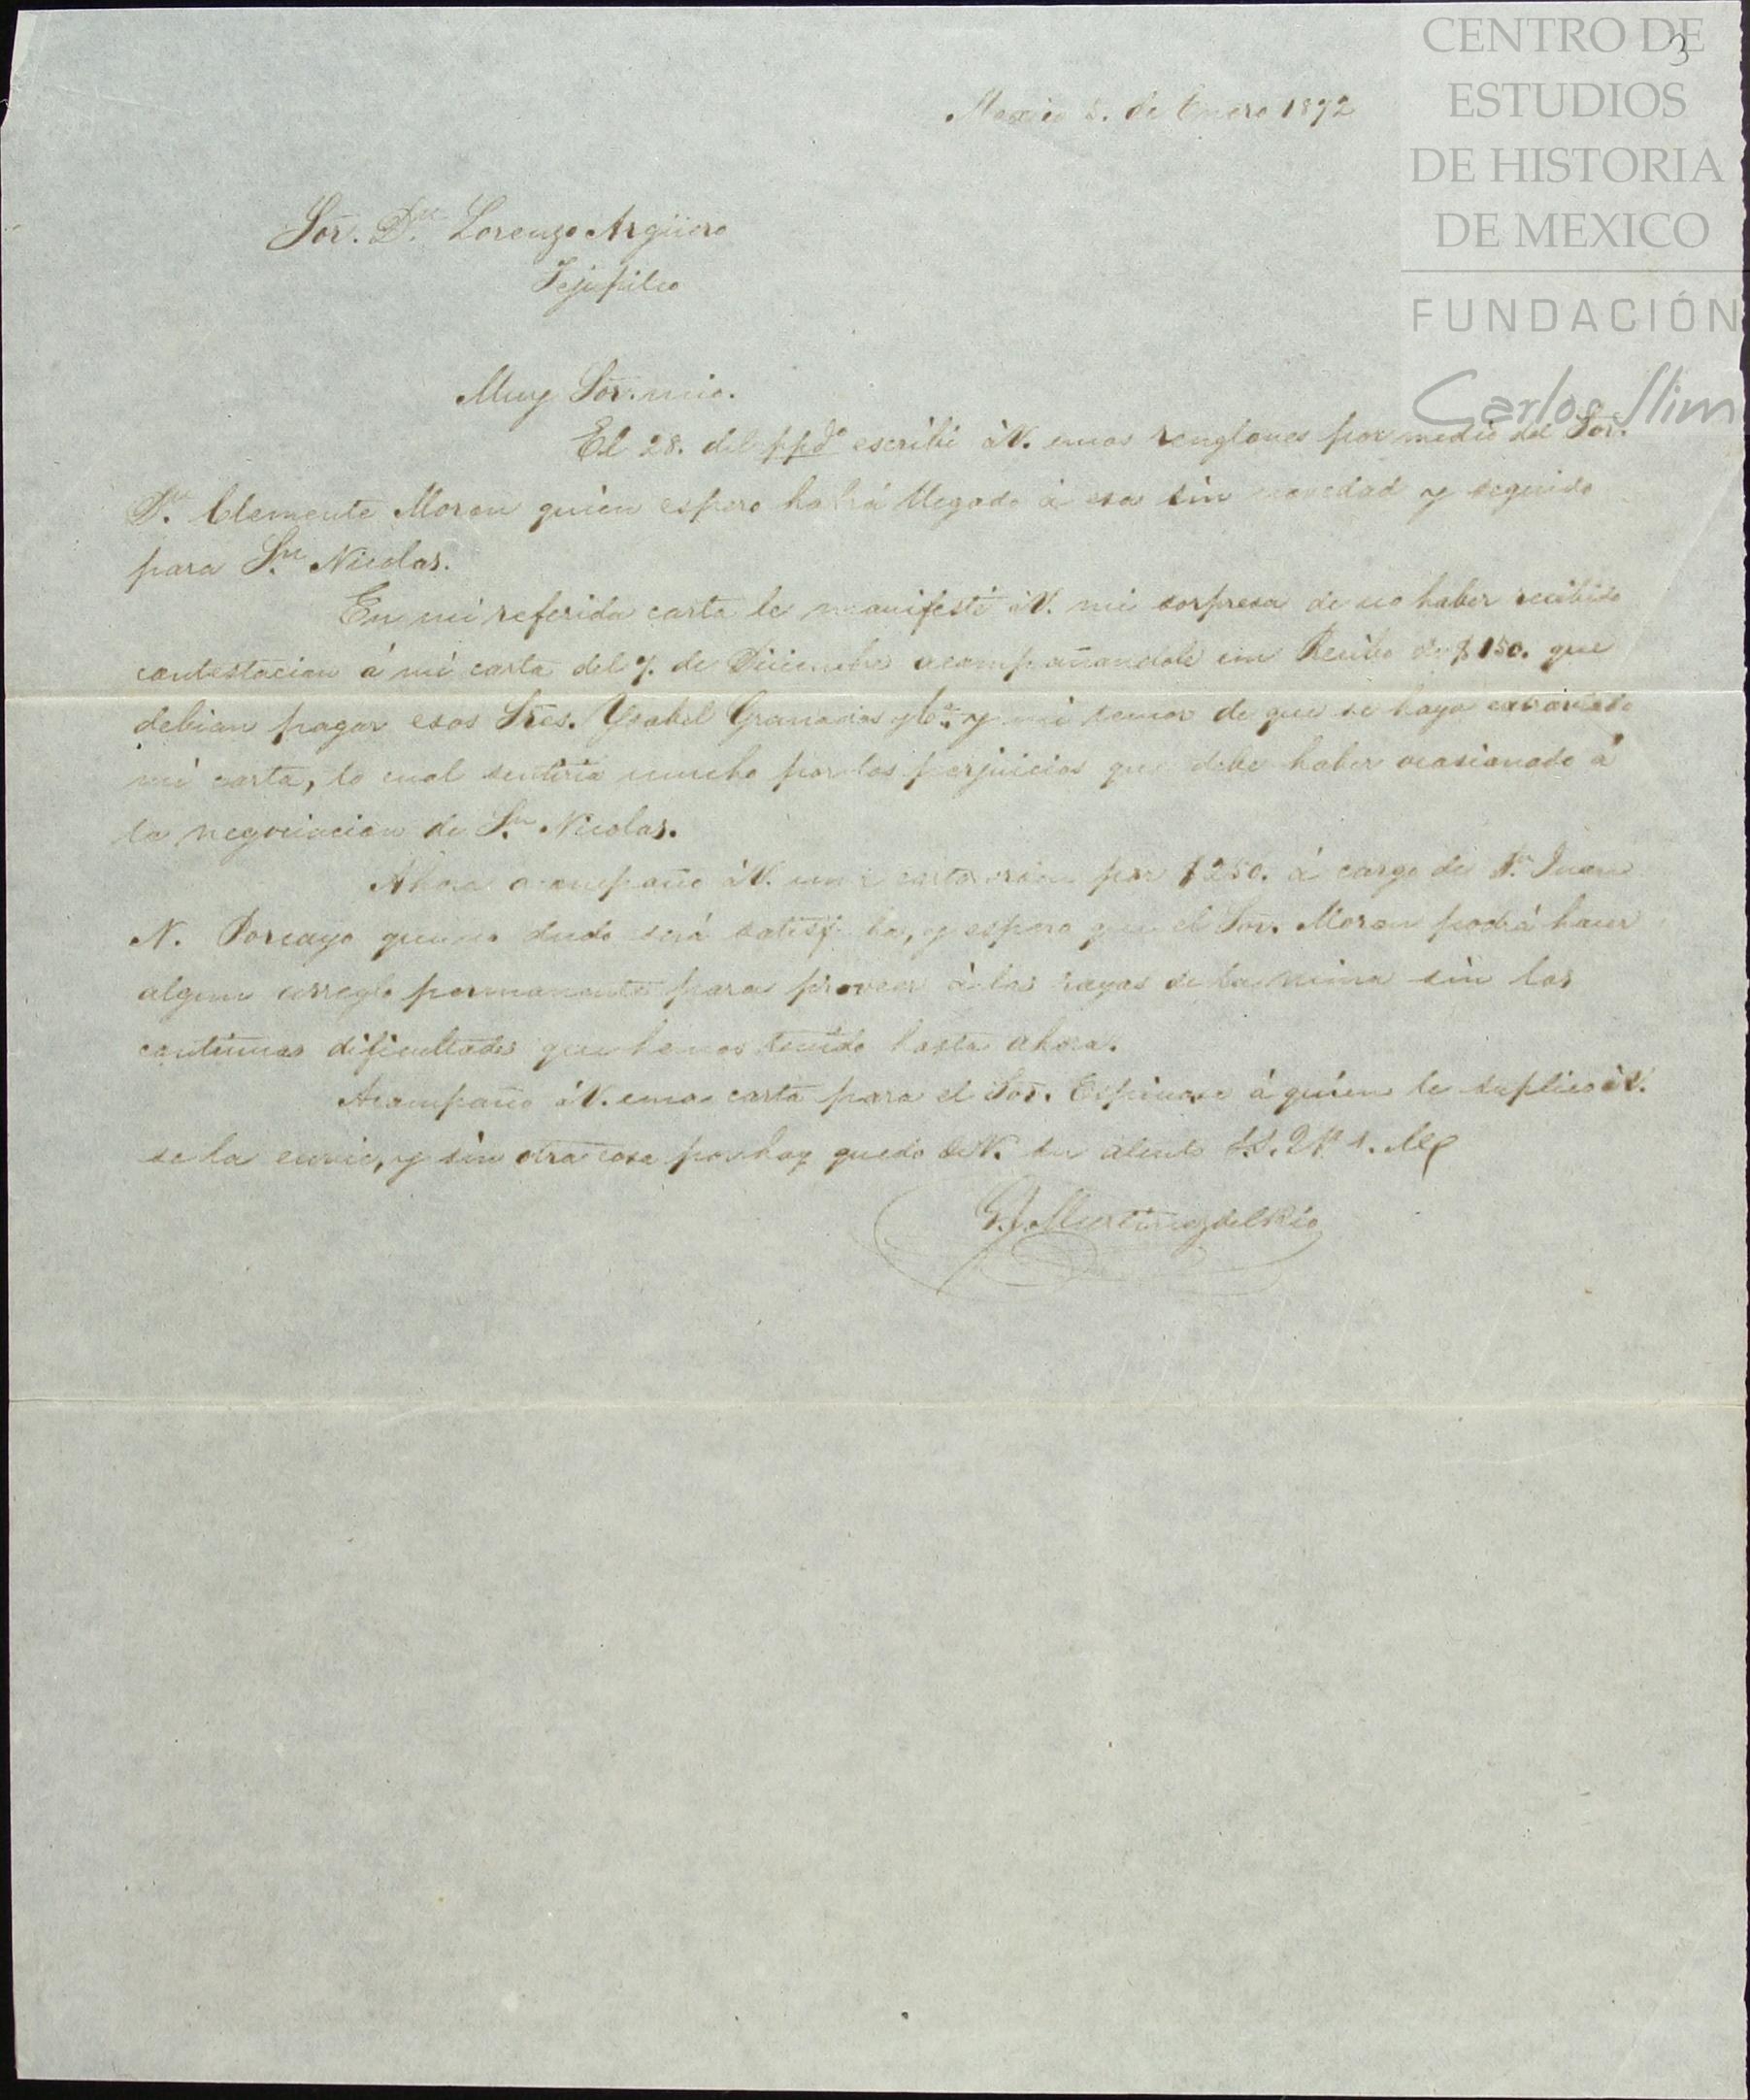 CENTRO DE
ESTUDIOS
DE HISTORIA
DE MEXICO
FUNDACIÓN
Carlos Slim
3
Mexico de Enero 1892
Sor. Dn. Lorenzo Argüero
Tejupilco
Muy Sor. mio.
El 28. del ppdo escribi á V. unos renglones por medio del Sor.
Dn. Clemente Moron quien espero habrá llegado á esa sin novedad y seguido
para Sn. Nicolas.
En mi referida carta le manifesté á V. mi sorpresa de no haber recibido
contestacion á mi carta del 7. de Diciembre acompañandole un Recibo de $150. que
debian pagar esos Sres. Ysabel Granados y Ca. y mi temor de que se haya estraviado
mi carta, lo cual sentiria mucho por los perjuicios que debe haber ocasionado á
la negociacion de Sn. Nicolas.
Ahora acompaño á V. una carta orden por $250. á cargo de Dn. Juan
N. Porcayo que no dudo será satisfecha, y espero que el Sor. Moron podrá hacer
algun arreglo permanente para proveer á las rayas de la mina sin las
continuas dificultades que hemos tenido hasta ahora.
Acompaño á V. una carta para el Sor. Espinosa á quien le suplico á V.
se la envie, y sin otra cosa por hoy quedo de V. su atento S.S. Q. B. S. M.
Martinez del Rio